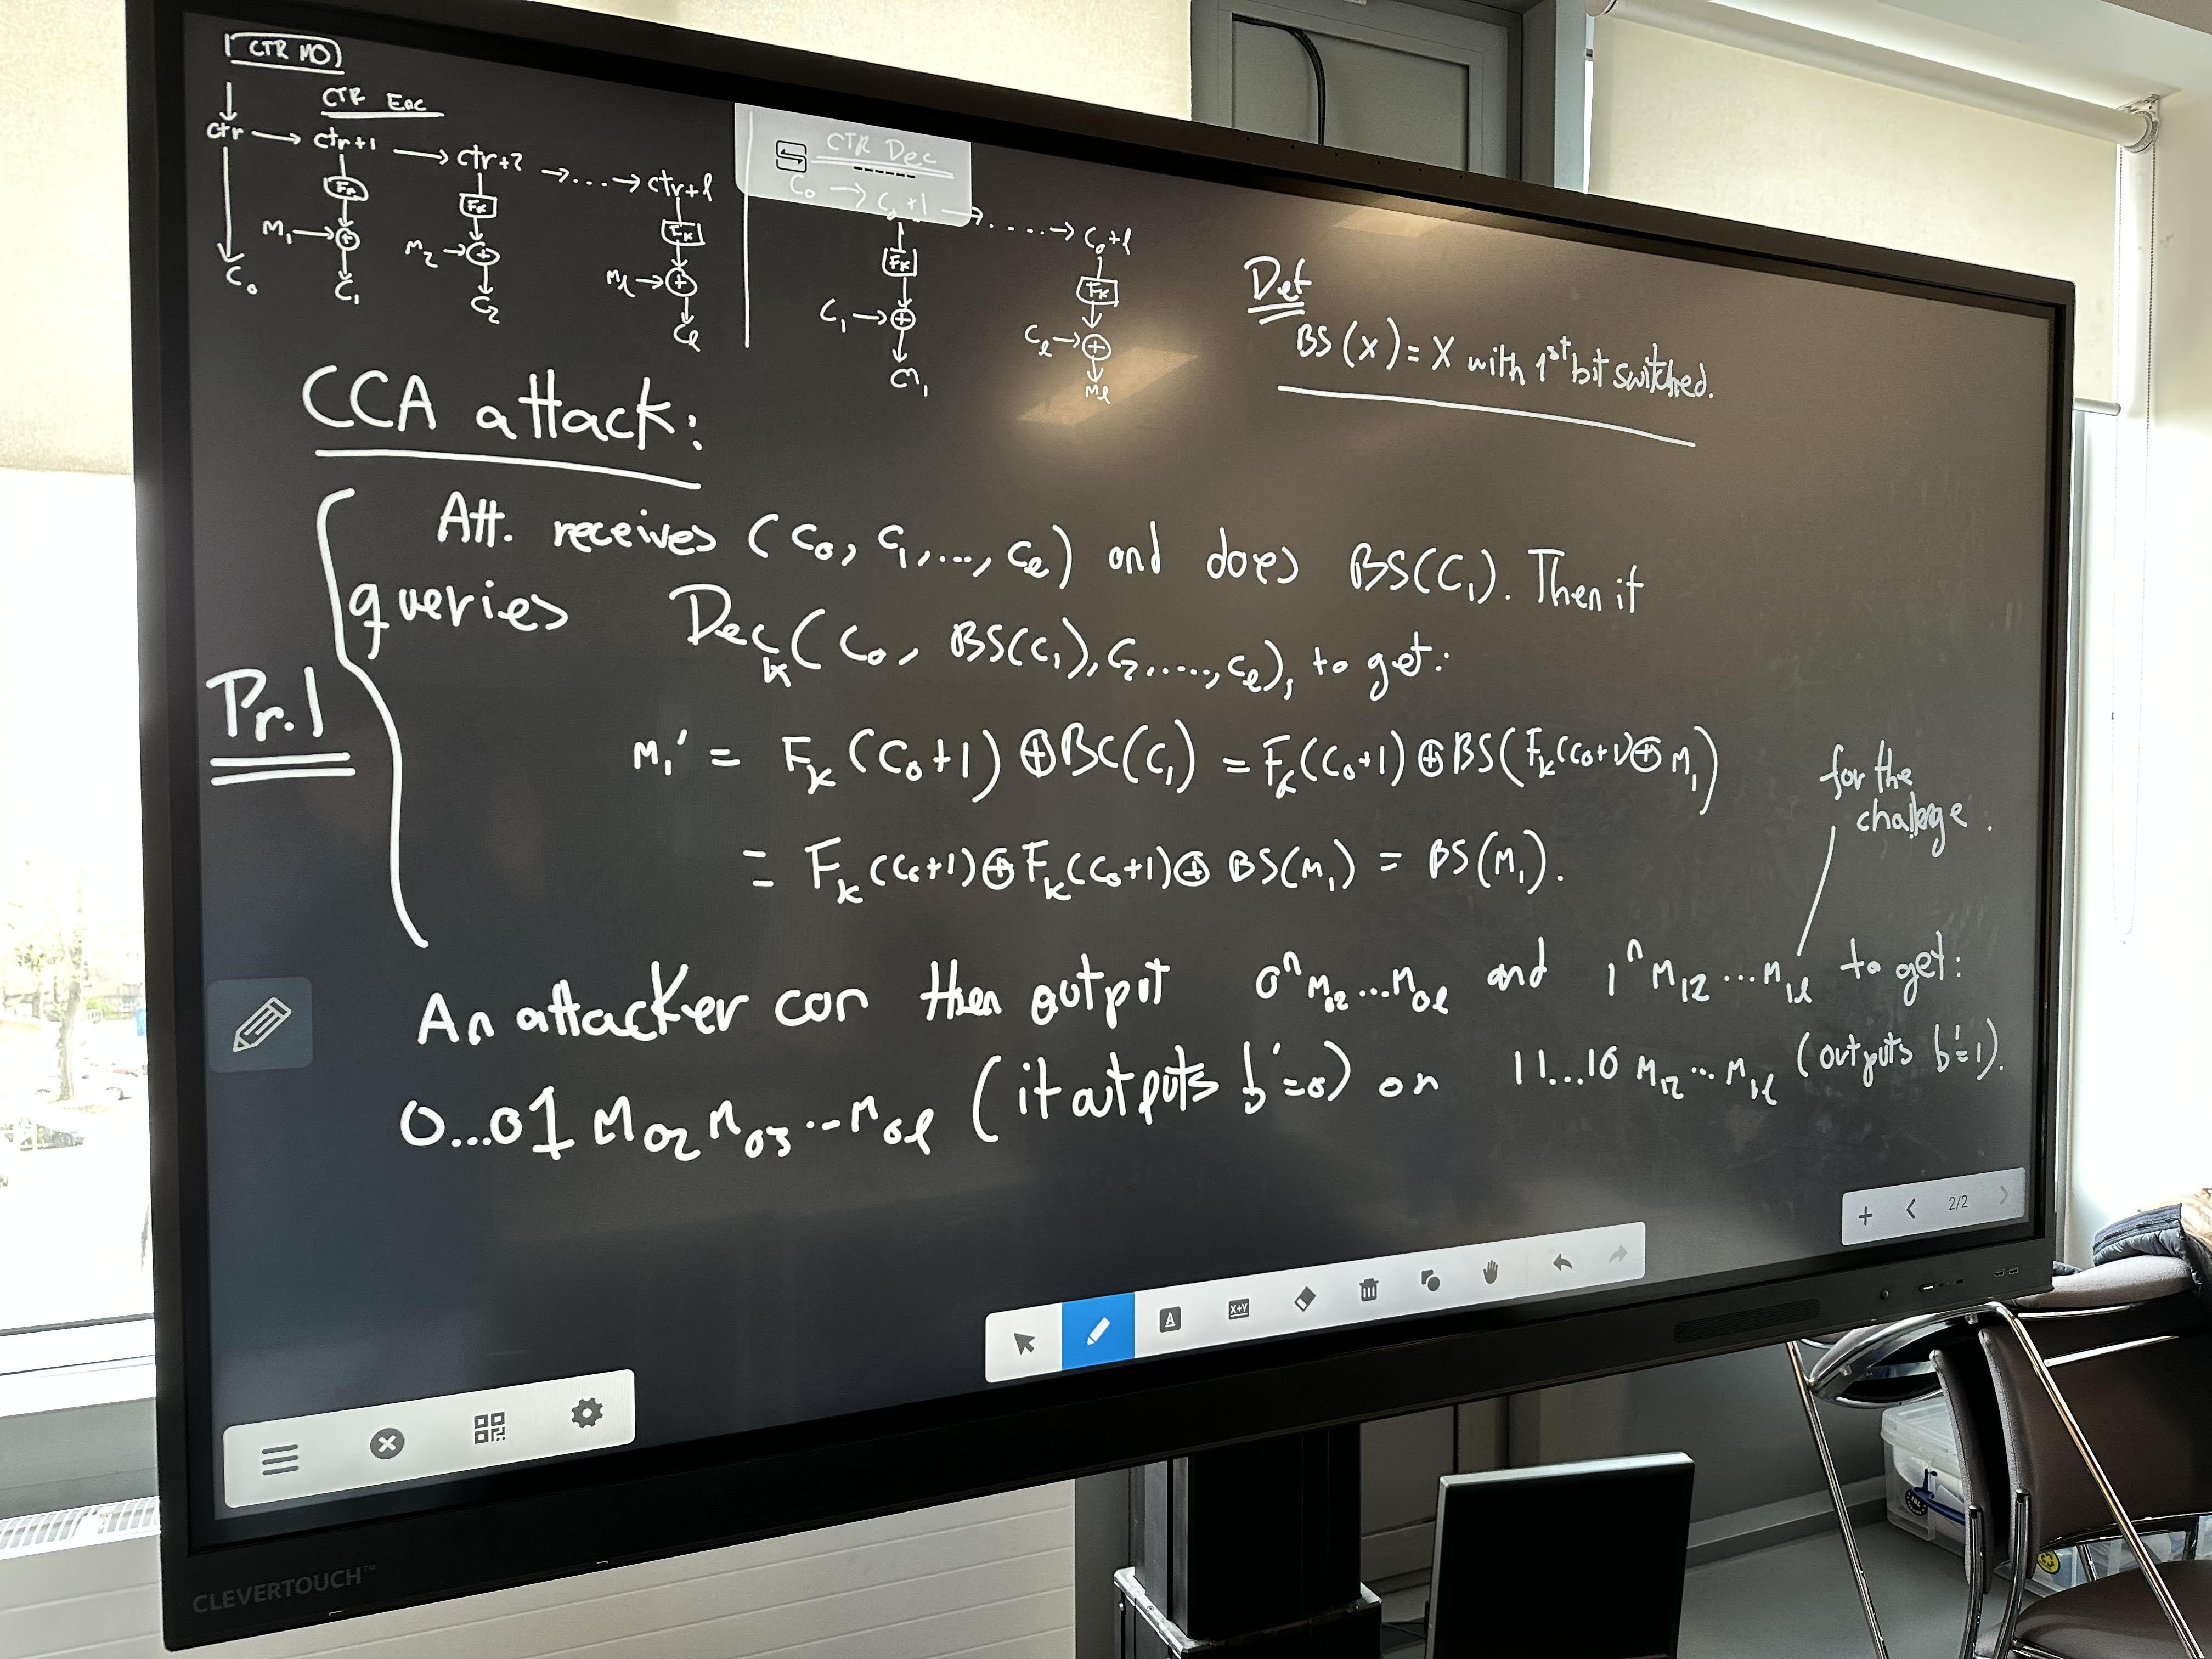 CTR MO
CTR Enc
ctr → ctr+1 → ctr+2 →....→ ctr+l
Fk Fk Fk
M₁ → ⊕ M₂ → ⊕ Ml → ⊕
C₀ C₁ C₂ Cl
CTR Dec
C₀ → C₀+1 →.....→ C₀+l
Fk Fk
C₁ → ⊕ Cl → ⊕
M₁ Ml
Def
BS(X) = X with 1st bit switched.
CCA attack:
Pr.1
Att. receives (C₀, C₁,..., Cl) and does BS(C₁). Then it
queries Deck(C₀, BS(C₁), C₂,....., Cl), to get:
M₁' = Fk(C₀+1) ⊕ BC(C₁) = Fk(C₀+1) ⊕ BS(Fk(C₀+1) ⊕ M₁)
= Fk(C₀+1) ⊕ Fk(C₀+1) ⊕ BS(M₁) = BS(M₁).
for the
challenge.
An attacker can then output 0ⁿ M₀₂...M₀l and 1ⁿ M₁₂...M₁l to get:
0...01 M₀₂ M₀₃...M₀l (it outputs b'=0) or 11...10 M₁₂...M₁l (outputs b'=1).
2/2
A
X+Y
CLEVERTOUCH™